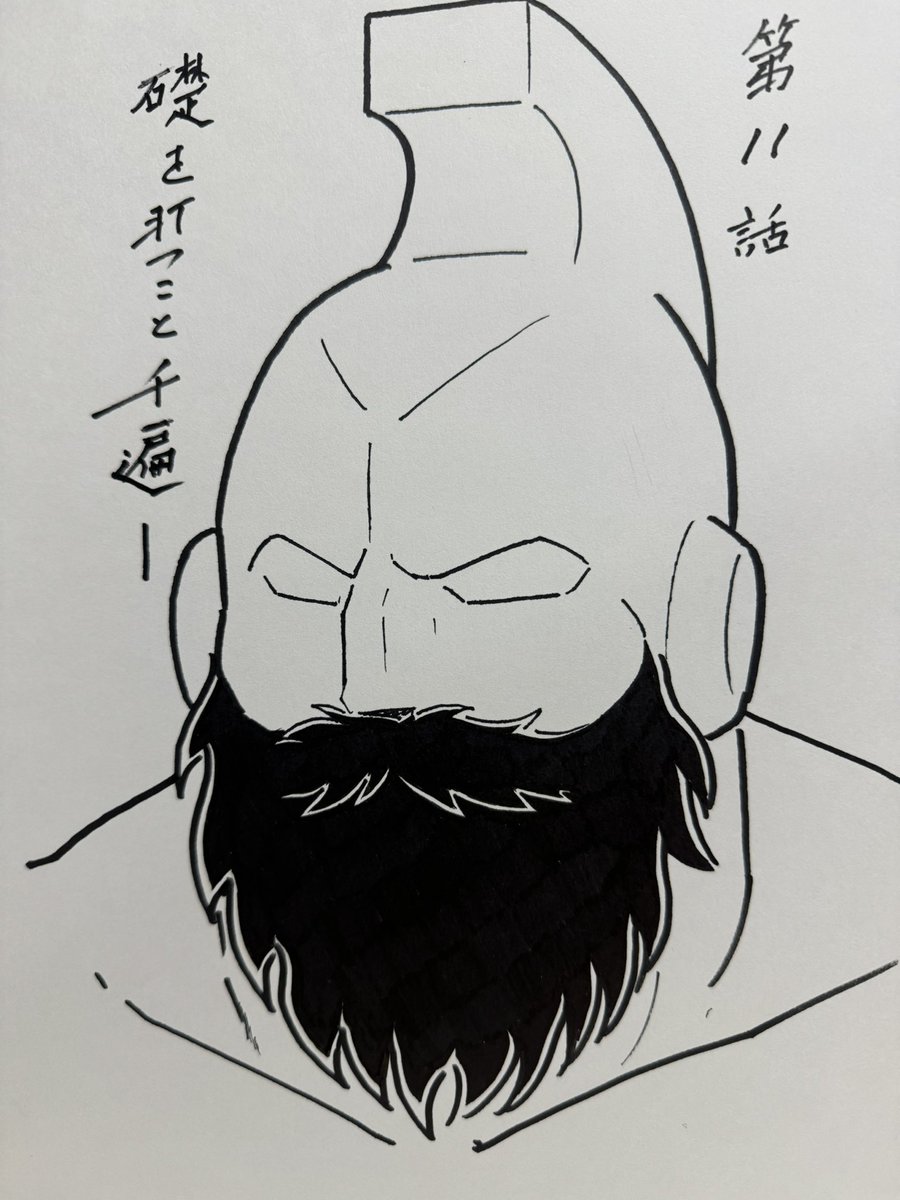 第11話
礎を打つこと千遍ー